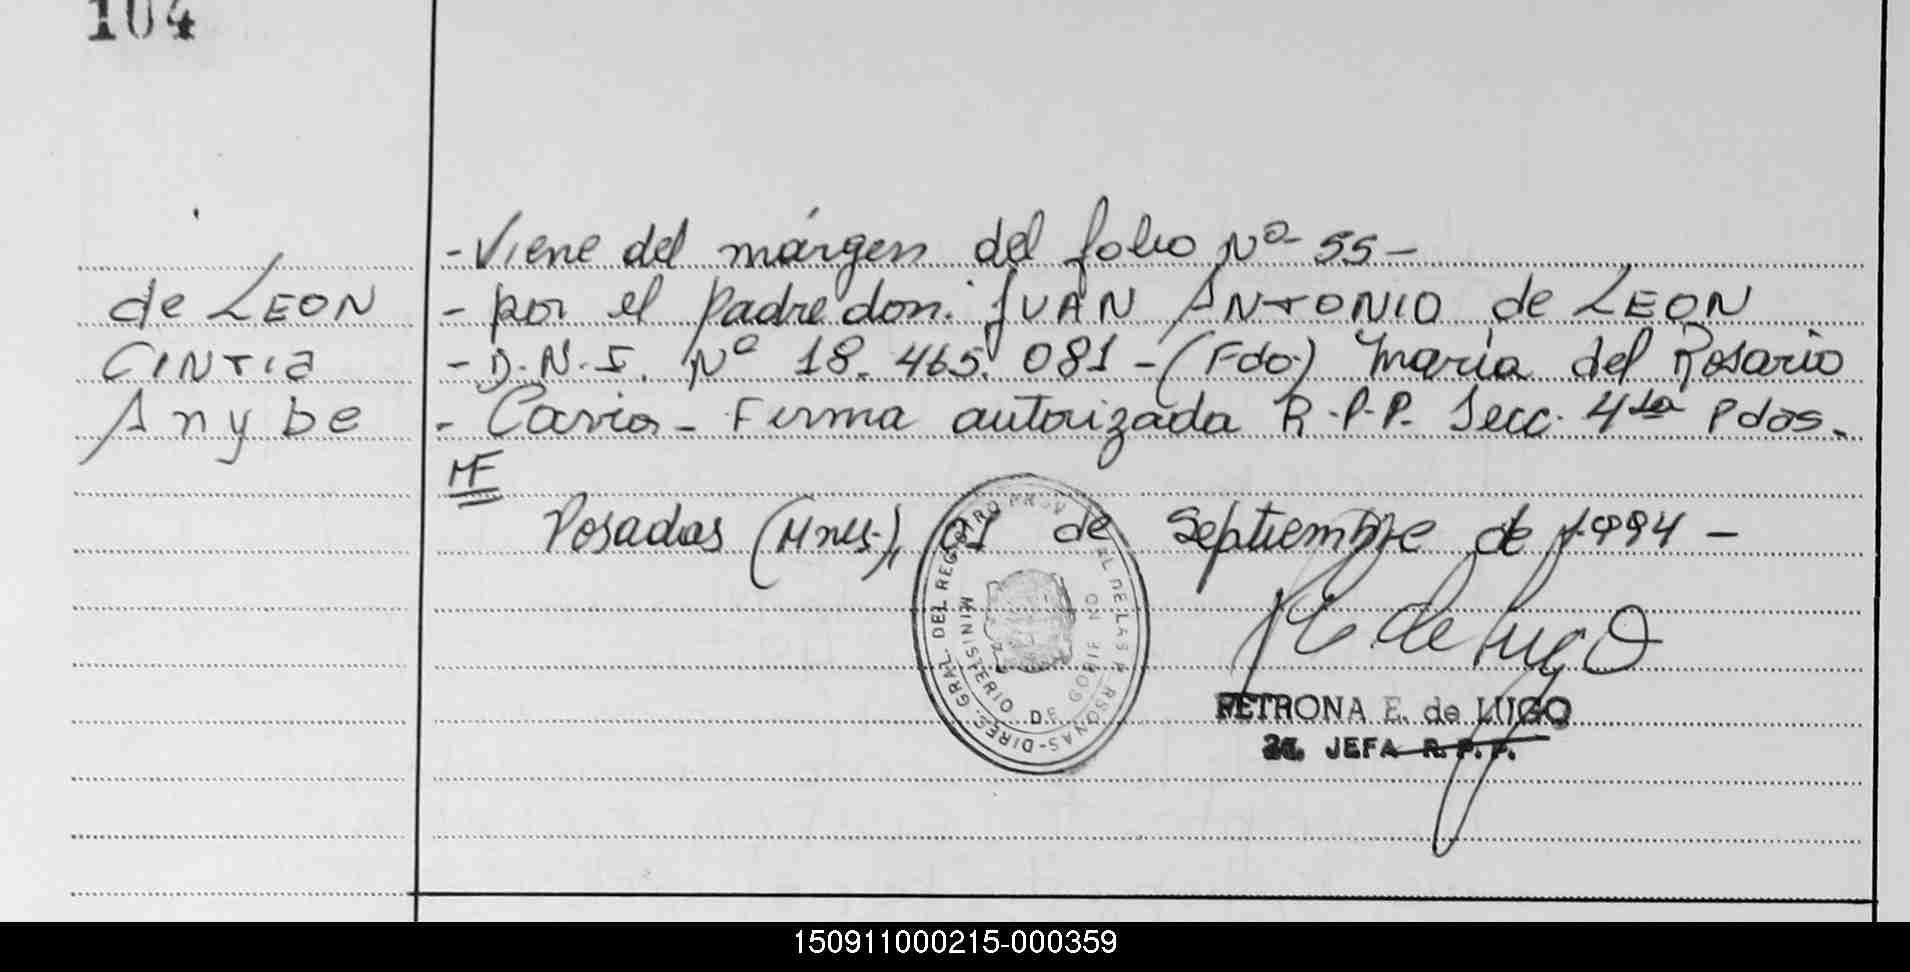 104
de LEON
CINTIA
Anybe
- Viene del márgen del folio Nº 55 -
- por el padre don: JUAN ANTONIO de LEON
- D.N.I. Nº 18.465.081 - (Fdo.) María del Rosario
- Firma autorizada R.P.P. Secc. 4ta Pdas.
MF
Posadas (Mnes.), 01 de Septiembre de 1994 -
DIREC. GRAL. DEL REGISTRO PROV DE LAS PERSONAS
MINISTERIO DE GOBIERNO
PETRONA E. de LUGO
JEFA R.P.P.
150911000215-000359